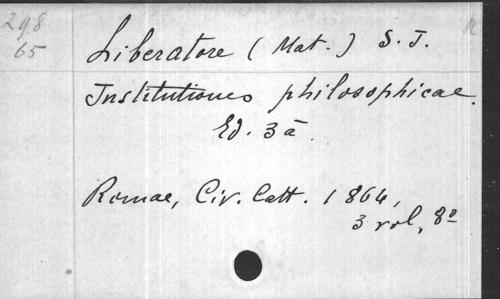 298
65
Liberatore (Mat.) S. J.
Institutiones philosophicae.
Ed. 3ā.
Romae, Civ. Catt. 1864,
3 vol, 8º